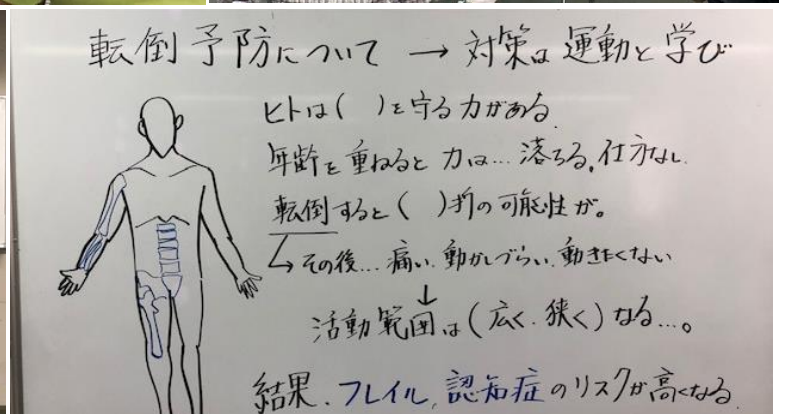 転倒予防について → 対策は運動と学び
ヒトは(　)を守る力がある
年齢を重ねると 力は… 落ちる,仕方なし.
転倒すると(　)折の可能性が。
↳その後… 痛い.動かしづらい.動きたくない
↓
活動範囲は(広く.狭く)なる…。
結果.フレイル,認知症のリスクが高くなる.